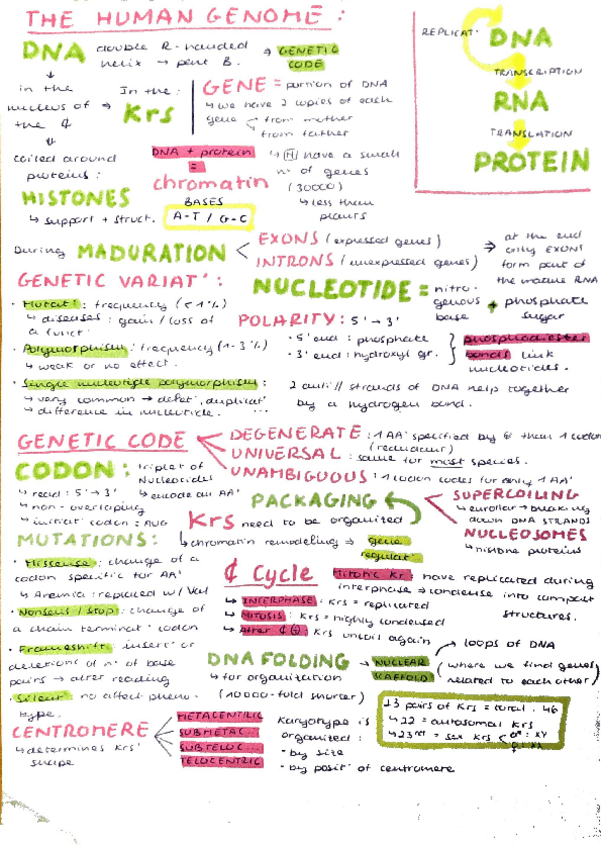 THE HUMAN GENOME:
DNA double R-handed helix → part B. → GENETIC CODE
↓
in the nucleus of the ¢
↓
coiled around proteins:
HISTONES
↳ support + struct.
→ In the: Krs
GENE = portion of DNA
↳ we have 2 copies of each gene
from mother
from father
DNA + protein
=
chromatin
↳ have a small nº of genes (30000)
↳ less them plants
BASES
A-T / G-C
REPLICAT: DNA
TRANSCRIPTION
RNA
TRANSLATION
PROTEIN
During MADURATION < EXONS (expressed genes)
INTRONS (unexpressed genes)
⇒ at the end only EXONS form part of the mature RNA
GENETIC VARIAT':
· Mutat': frequency (<1%)
↳ diseases: gain/loss of a funct'
· Polymorphism: frequency (1-3%)
↳ weak or no effect.
· Single nucleotide polymorphism:
↳ very common → delet', duplicat'
↳ difference in nucleotide. ...
NUCLEOTIDE = nitrogenous base + phosphate sugar
POLARITY: 5' → 3'
· 5' end: phosphate
· 3' end: hydroxyl gr.
phosphodiester bonds link nucleotides.
2 anti// strands of DNA help together
by a hydrogen bond.
GENETIC CODE
DEGENERATE: 1 AA' specified by + them 1 codon
(redundant)
UNIVERSAL: same for most species.
UNAMBIGUOUS: 1 codon codes for only 1 AA'
CODON: triplet of Nucleotides
↳ encode an AA'
↳ read: 5' → 3'
↳ non-overlaping
↳ initiat' codon: AUG
PACKAGING
Krs need to be organized
↳ chromatin remodeling ⇒ gene regulat'
SUPERCOILING
↳ breaking down DNA STRANDS
NUCLEOSOMES
↳ histone proteins
MUTATIONS:
· Missense: change of a codon specific for AA'
↳ Anemia: replaced w/ Val
· Nonsens/Stop: change of a chain terminat' codon
· Frameshift: insert' or deletions of nº of base pairs → alter reading
· Silent: no affect phenotype.
¢ Cycle
↳ INTERPHASE: Krs = replicated
↳ MITOSIS: Krs = highly condensed
↳ After ¢: Krs uncoil again
Mitotic Kr: have replicated during
interphase ⇒ condense into compact
structures.
DNA FOLDING → NUCLEAR SCAFFOLD
↳ for organization
(10000-fold shorter)
→ loops of DNA
(where we find genes related to each other)
CENTROMERE
↳ determines Krs' shape
METACENTRIC
SUBMETAC.
SUBTELOC.
TELOCENTRIC
Karyotype is organized:
· by size
· by posit' of centromere
23 pairs of Krs = total: 46
↳ 22 = autosomal Krs
↳ 23rd = sex Krs < ♂: XY
♀: XX